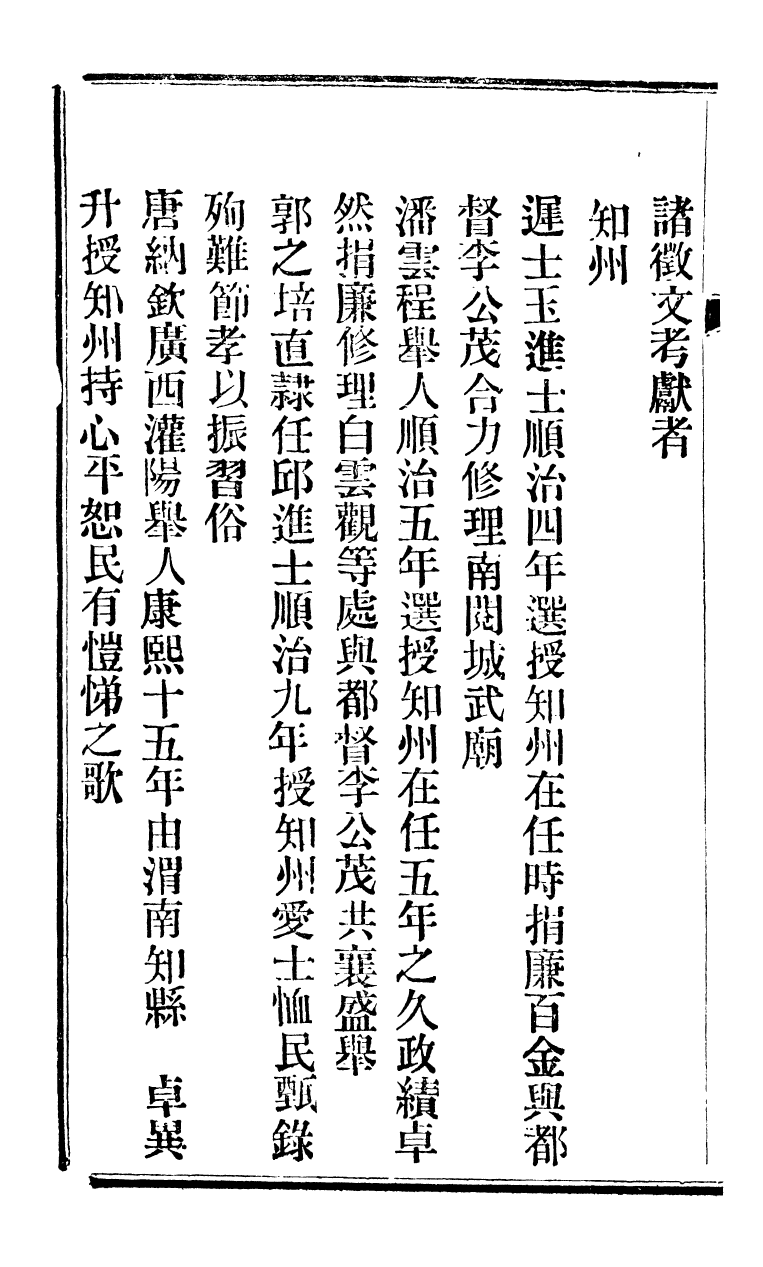 諸徵文考獻者
知州
遲士玉進士順治四年選授知州在任時捐廉百金與都
督李公茂合力修理南閣城武廟
潘雲程舉人順治五年選授知州在任五年之久政績卓
然捐廉修理白雲觀等處與都督李公茂共襄盛舉
郭之培直隸任邱進士順治九年授知州愛士恤民甄錄
殉難節孝以振習俗
唐納欽廣西灌陽舉人康熙十五年由渭南知縣 卓異
升授知州持心平恕民有愷悌之歌